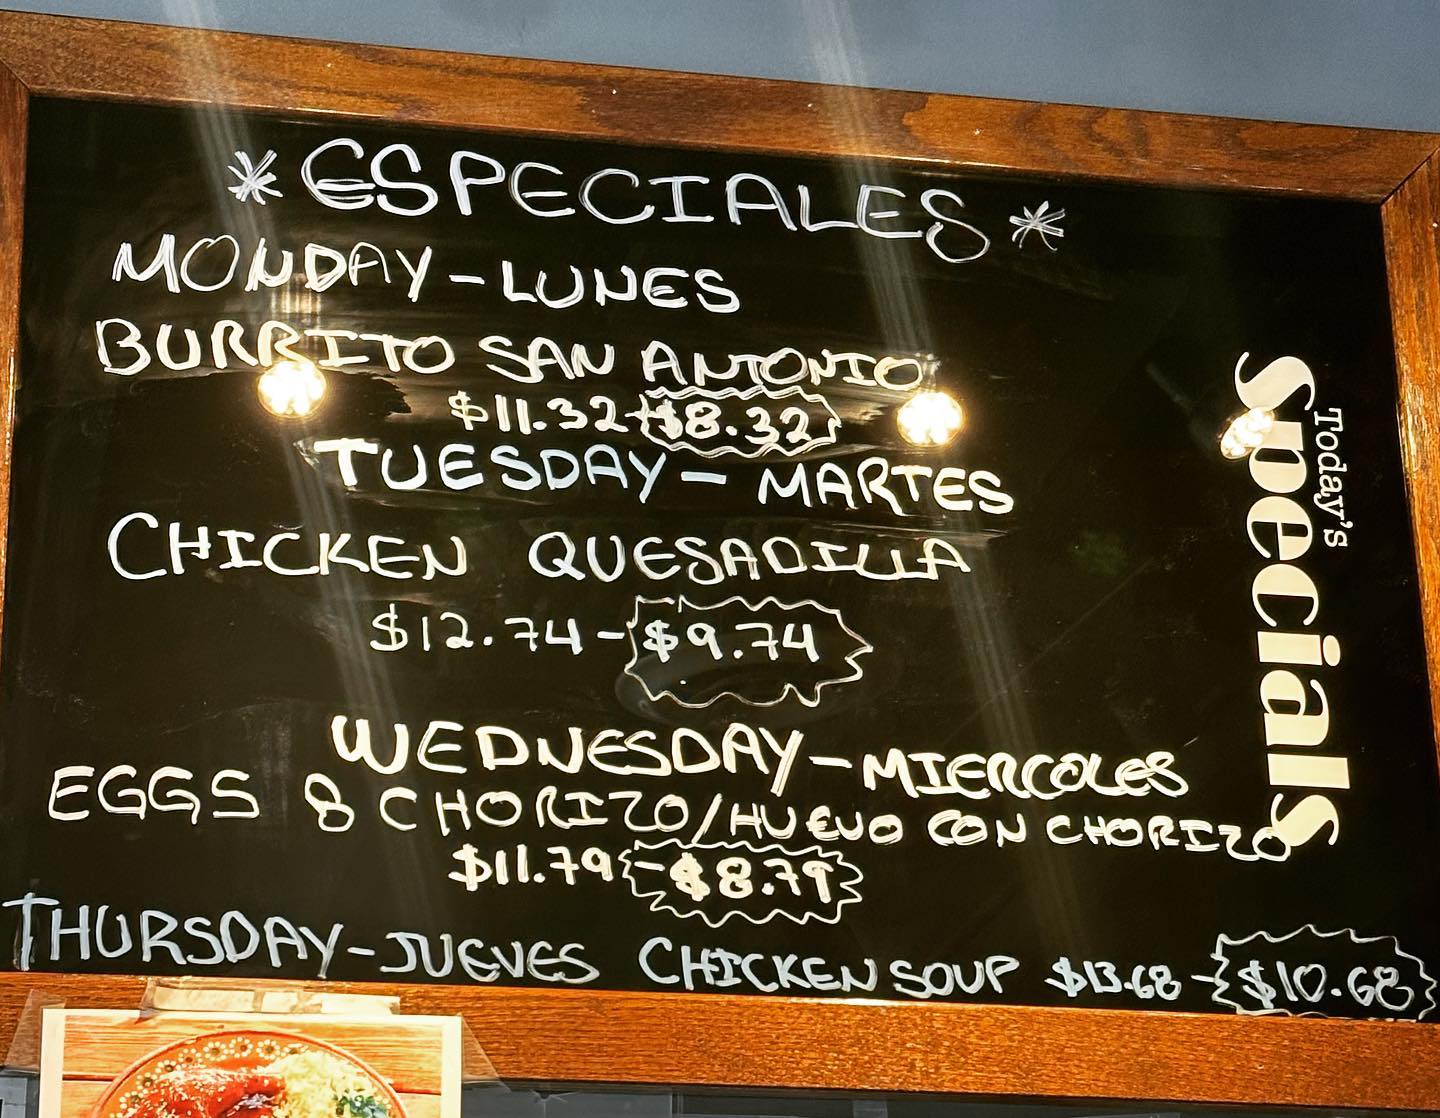 *ESPECIALES*
MONDAY-LUNES
BURRITO SAN ANTONIO
$11.32-$8.32
TUESDAY-MARTES
CHICKEN QUESADILLA
$12.74-$9.74
WEDNESDAY-MIERCOLES
EGGS & CHORIZO/HUEVO CON CHORIZO
$11.79-$8.79
THURSDAY-JUEVES CHICKEN SOUP $13.68-$10.68
Today's
Specials